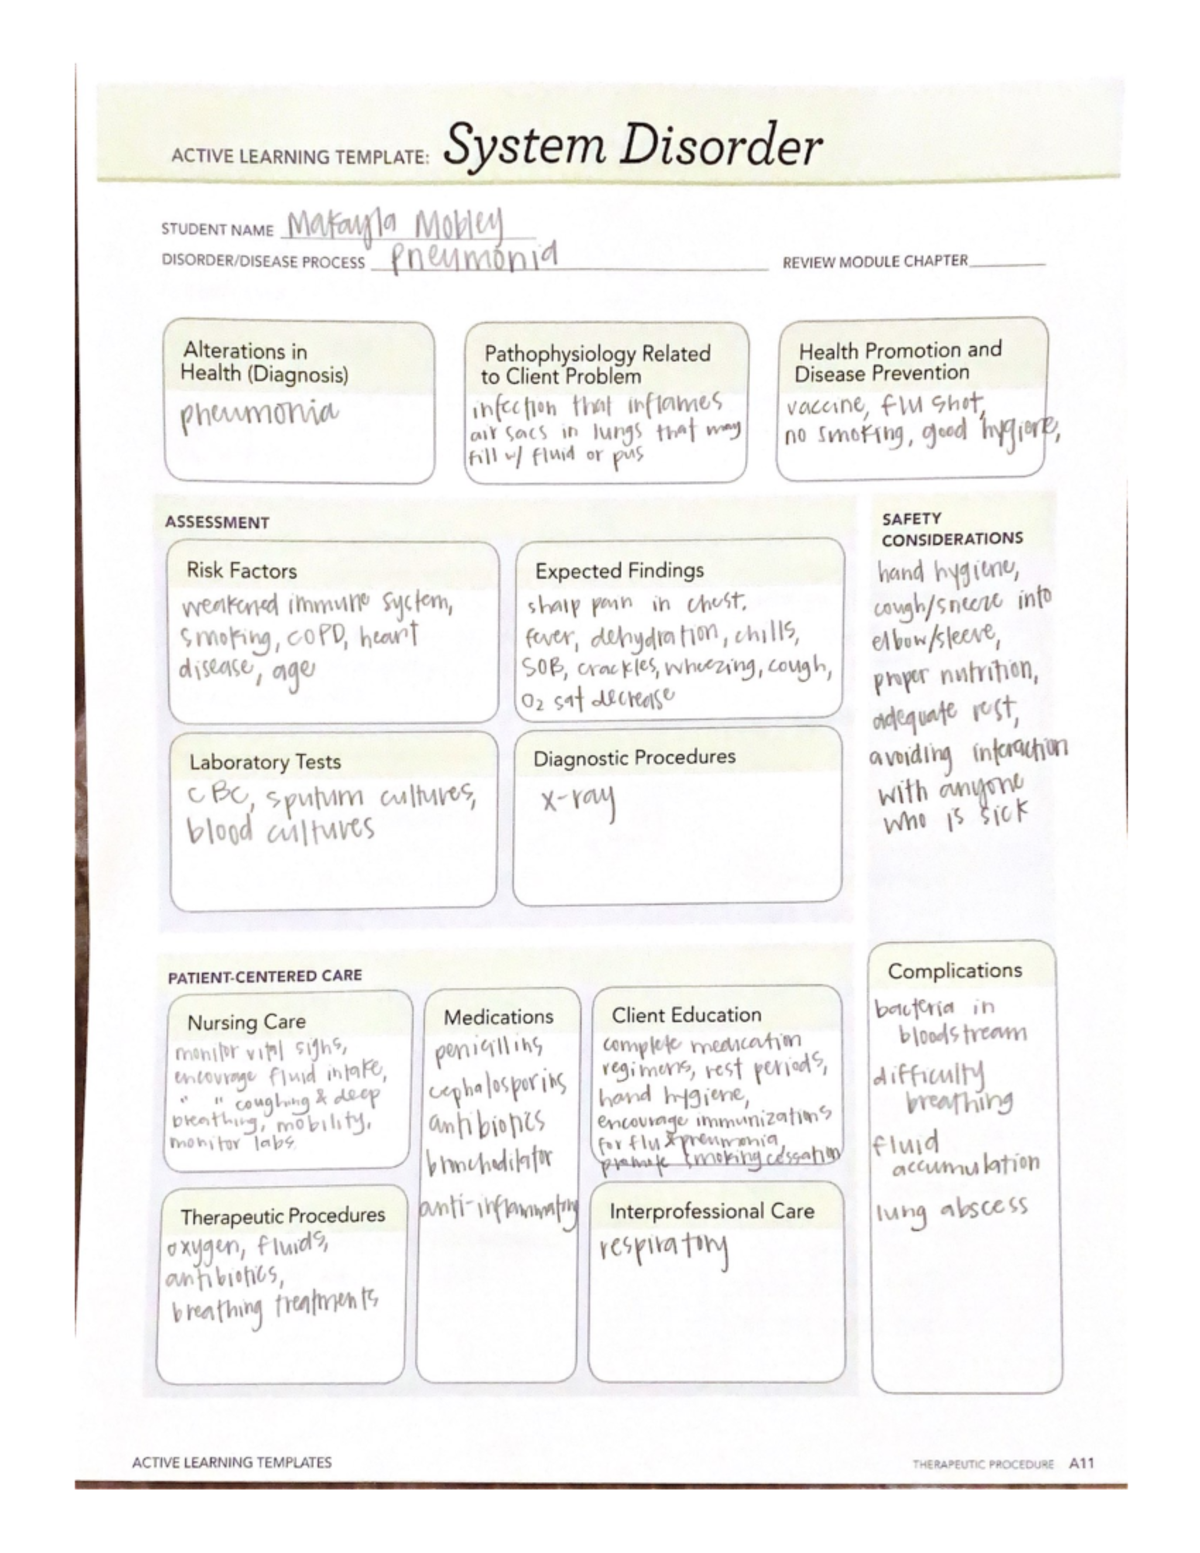 ACTIVE LEARNING TEMPLATE: System Disorder
STUDENT NAME Makayla Mobley
DISORDER/DISEASE PROCESS pneumonia
REVIEW MODULE CHAPTER
Alterations in
Health (Diagnosis)
pneumonia
Pathophysiology Related
to Client Problem
infection that inflames
air sacs in lungs that may
fill w/ fluid or pus
Health Promotion and
Disease Prevention
vaccine, flu shot,
no smoking, good hygiene,
ASSESSMENT
Risk Factors
weakened immune system,
smoking, COPD, heart
disease, age
Expected Findings
sharp pain in chest,
fever, dehydration, chills,
SOB, crackles, wheezing, cough,
O2 sat decrease
Laboratory Tests
CBC, sputum cultures,
blood cultures
Diagnostic Procedures
x-ray
SAFETY
CONSIDERATIONS
hand hygiene,
cough/sneeze into
elbow/sleeve,
proper nutrition,
adequate rest,
avoiding interaction
with anyone
who is sick
PATIENT-CENTERED CARE
Nursing Care
monitor vital signs,
encourage fluid intake,
" " coughing & deep
breathing, mobility,
monitor labs
Medications
penicillins
cephalosporins
antibiotics
bronchodilator
anti-inflammatory
Client Education
complete medication
regimens, rest periods,
hand hygiene,
encourage immunizations
for flu & pneumonia,
promote smoking cessation
Therapeutic Procedures
oxygen, fluids,
antibiotics,
breathing treatments
Interprofessional Care
respiratory
Complications
bacteria in
bloodstream
difficulty
breathing
fluid
accumulation
lung abscess
ACTIVE LEARNING TEMPLATES
THERAPEUTIC PROCEDURE A11